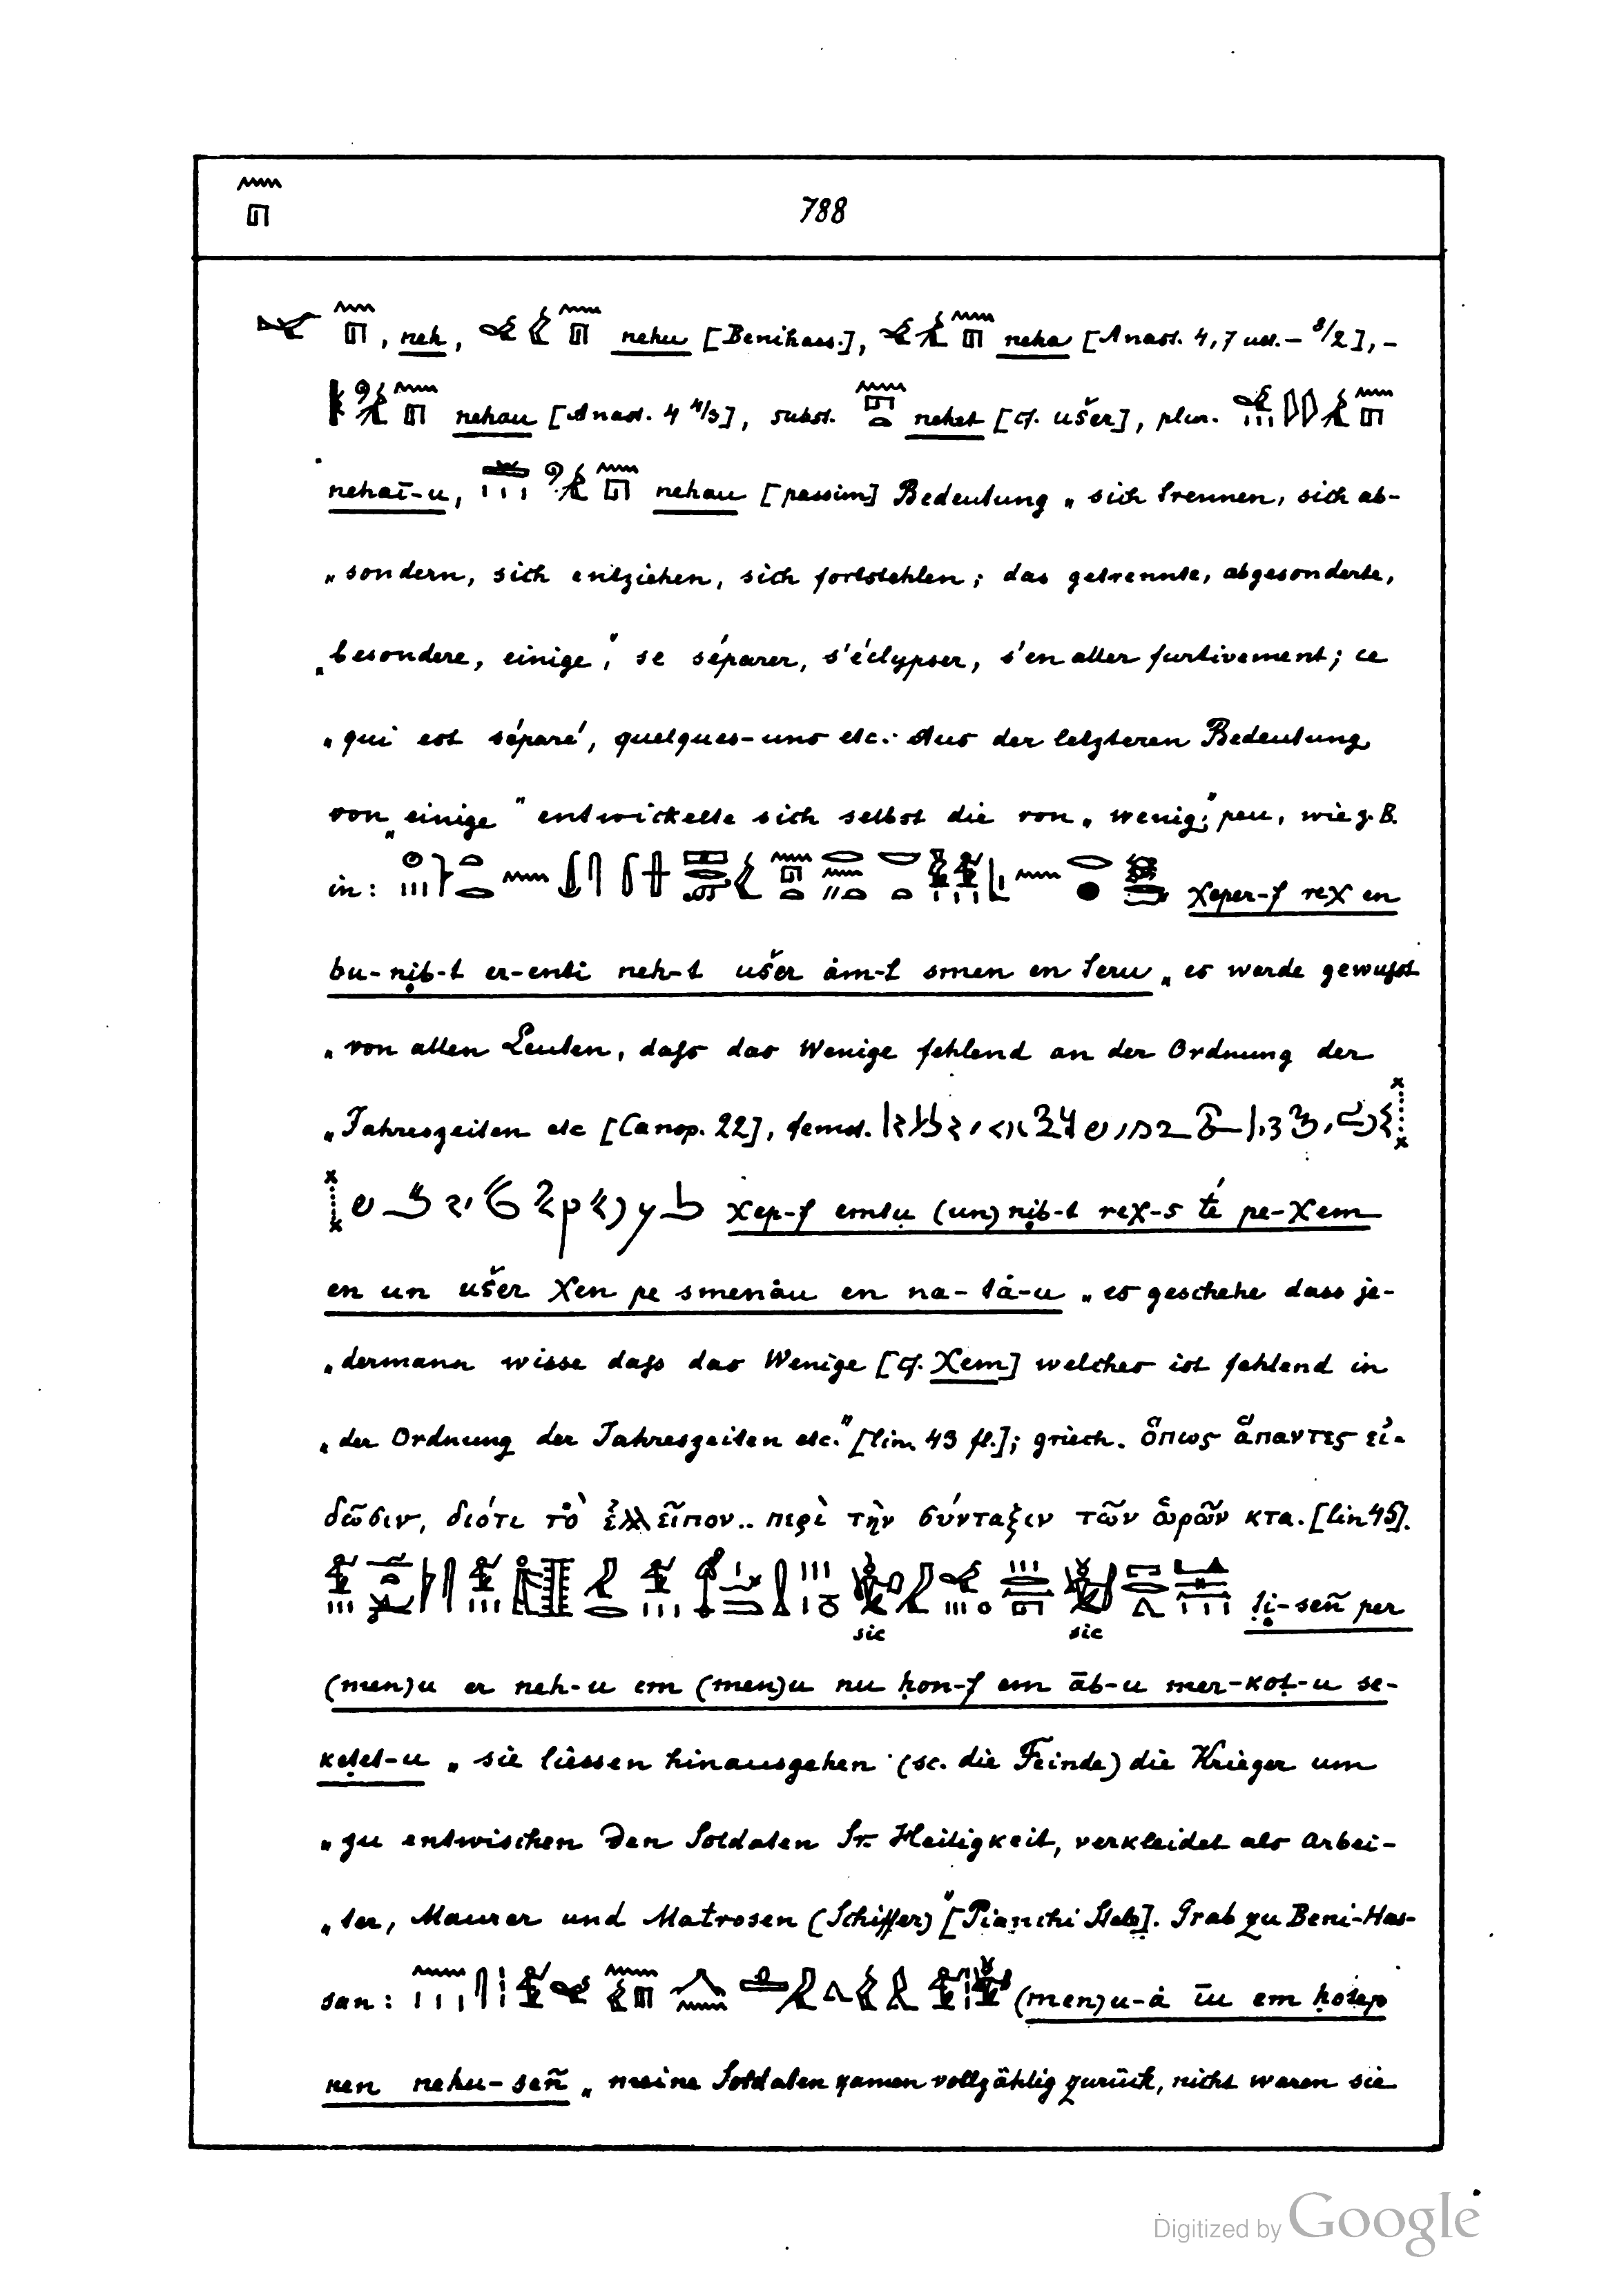 788
, neh, nehu [Benihass.], neha [Anast. 4,7 ult. – 8/2], –
nehau [Anast. 4 4/3], subst. nehet [cf. ušer], plur.
nehaī-u, nehau [passim] Bedeutung „sich trennen, sich ab-
„sondern, sich entziehen, sich fortstehlen; das getrennte, abgesonderte,
„besondere, einige", se séparer, s'éclypser, s'en aller furtivement; ce
„qui est séparé, quelques-uns etc. Aus der letzteren Bedeutung
von „einige" entwickelte sich selbst die von „wenig", peu, wie z.B.
in: χeper-f reχ en
bu-nib-t er-enti neh-t ušer ȧm-f smen en teru „es werde gewußt
„von allen Leuten, daß das Wenige fehlend an der Ordnung der
„Jahreszeiten etc [Canop. 22], demot.
χep-f emtu (un) nib-t reχ-s té pe-χem
en un ušer χen pe smenȧu en na-tȧ-u „es geschehe dass je-
„dermann wisse daß das Wenige [cf. χem] welches ist fehlend in
„der Ordnung der Jahreszeiten etc." [lin. 43 fl.]; griech. ὅπως ἅπαντες εἰ-
δῶσιν, διότι τὸ ἐλλεῖπον.. περὶ τὴν σύνταξιν τῶν ὡρῶν κτα. [lin 45].
ṭi-señ per
sic sic
(men)u er neh-u em (men)u nu ḥon-f em āb-u mer-koṭ-u se-
kṭet-u „sie liessen hinausgehen (sc. die Feinde) die Krieger um
„zu entwischen den Soldaten Sr. Heiligkeit, verkleidet als Arbei-
„ter, Maurer und Matrosen (Schiffer)" [Pianchi Stele]. Grab zu Beni-Has-
san: (men)u-ȧ īu em ḥotep
nen nehu-señ „meine Soldaten kamen vollzählig zurück, nicht waren sie
Digitized by Google